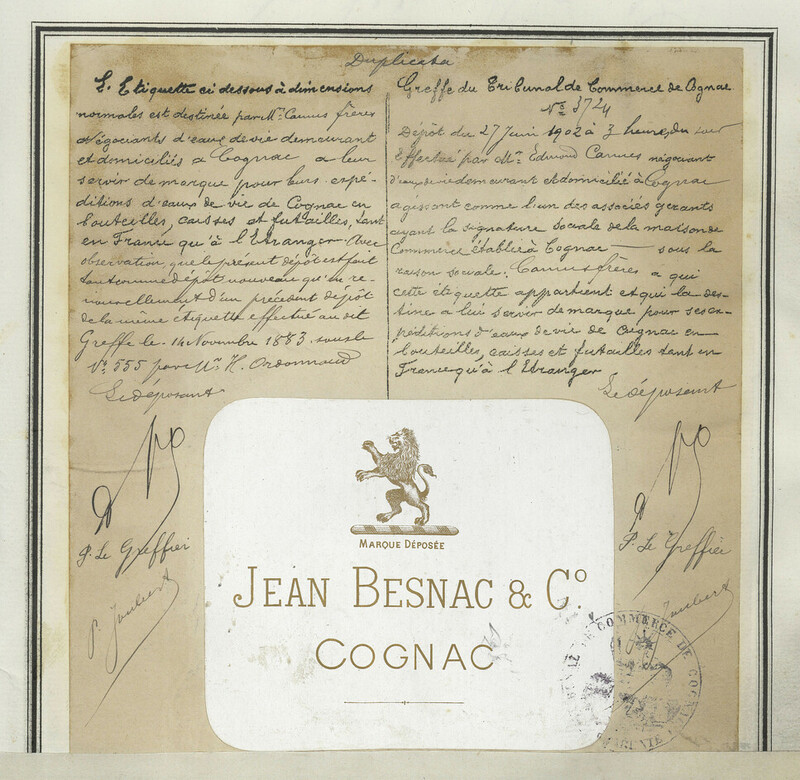 Duplicata
L'Etiquette ci dessous à dimensions
normales est destinée par Mrs. Camus frères
négociants d'eaux de vie demeurant
et domiciliés à Cognac à leur
servir de marque pour leurs expé-
ditions d'eaux de vie de Cognac en
bouteilles, caisses et futailles, tant
en France qu'à l'Etranger. Avec
observation, que le présent dépôt est fait
tout comme dépôt nouveau qu'en re-
nouvellement d'un précédent dépôt
de la même étiquette effectué au dit
Greffe le 14 Novembre 1883 sous le
No. 555 par Mr. H. Ordonnaud
Le déposant
P. Le Greffier
P. Joubert
Greffe du Tribunal de Commerce de Cognac
No 3724
Dépôt du 27 Juin 1902 à 3 heures du soir
Effectué par Mr. Edmond Camus négociant
d'eaux de vie demeurant et domicilié à Cognac
agissant comme l'un des associés gérants
ayant la signature sociale de la maison de
Commerce établie à Cognac — sous la
raison sociale. Camus frères à qui
cette étiquette appartient et qui la des-
tine à lui servir de marque pour ses ex-
péditions d'eaux de vie de Cognac en
bouteilles, caisses et futailles tant en
France qu'à l'Etranger
Le déposant
P. Le Greffier
Joubert
MARQUE DÉPOSÉE
JEAN BESNAC & Co.
COGNAC
DE COMMERCE DE COGNAC